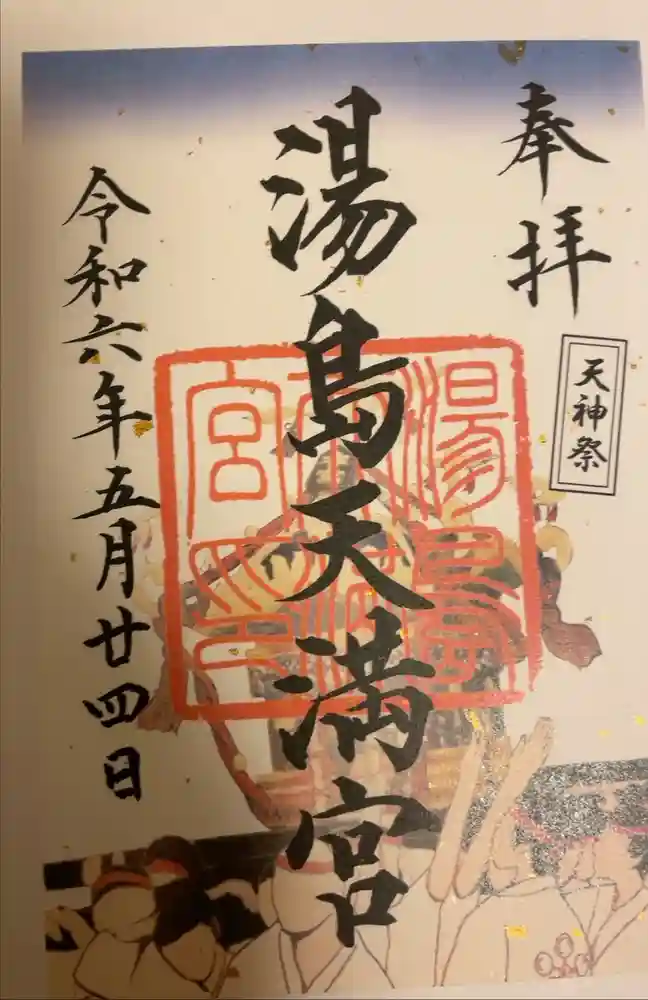 奉拝
天神祭
湯島天満宮
湯島天満宮印
令和六年五月廿四日